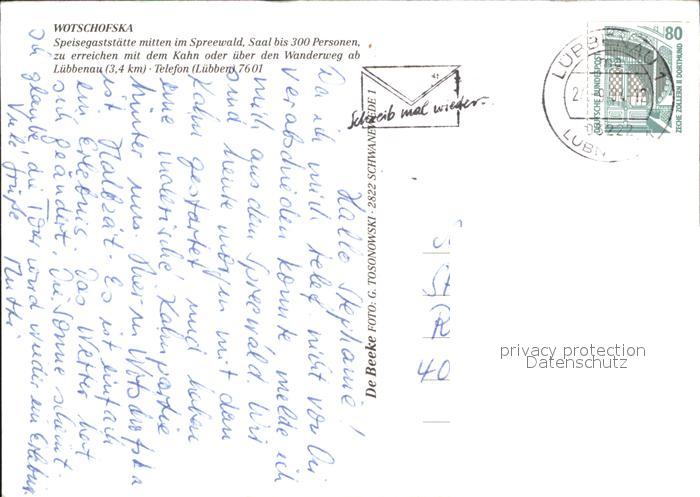 WOTSCHOFSKA
Speisegaststätte mitten im Spreewald, Saal bis 300 Personen,
zu erreichen mit dem Kahn oder über den Wanderweg ab
Lübbenau (3,4 km) · Telefon (Lübben) 7601
Hallo Stephanie!
Da ich mich telef. nicht von Dir
verabschieden konnte melde ich
mich aus dem Spreewald. Wir
sind heute morgen mit dem
Kahn gestartet und haben
eine malerische Kahnpartie
hinter uns. Hier in Wotschofska
ist Halbzeit. Es ist einfach
ein Erlebnis. Das Wetter hat
sich geändert. Die Sonne scheint.
Ich glaube, die Tour wird wieder ein Erlebnis
Viele Grüße Mutti
De Beeke FOTO: G. TOSONOWSKI · 2822 SCHWANEWEDE 1
Schreib mal wieder.
LÜBBENAU 1
80
DEUTSCHE BUNDESPOST
ZECHE ZOLLERN II DORTMUND
St
R
40
privacy protection
Datenschutz